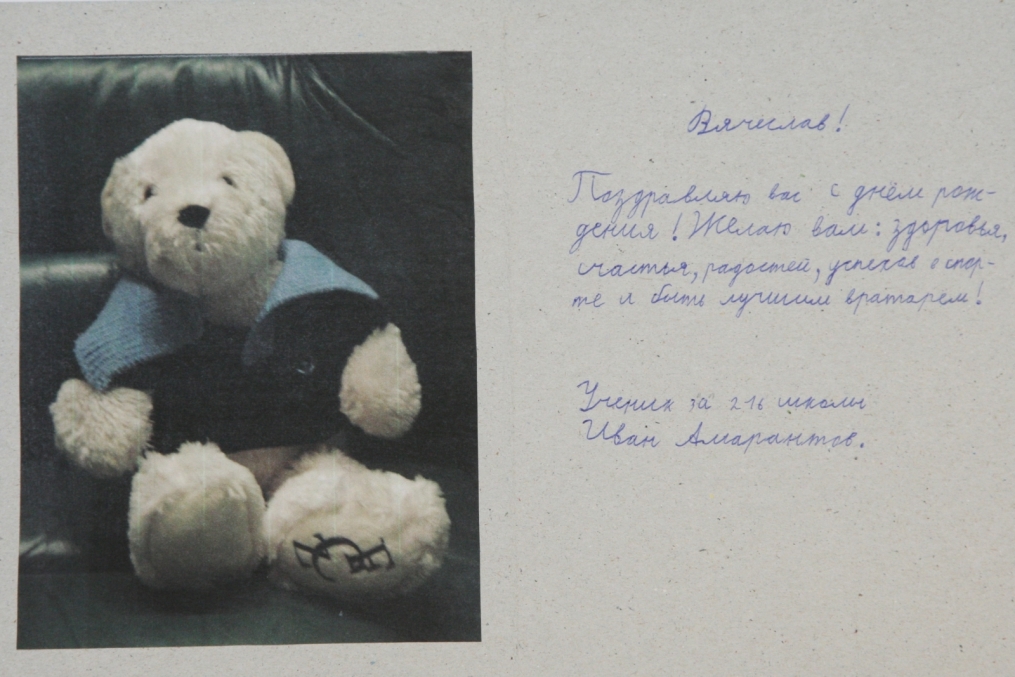 Вячеслав!
Поздравляю вас с днём рож-
дения! Желаю вам: здоровья,
счастья, радостей, успехов в спор-
те и быть лучшим вратарем!
Ученик 7а 216 школы
Иван Амарантов.